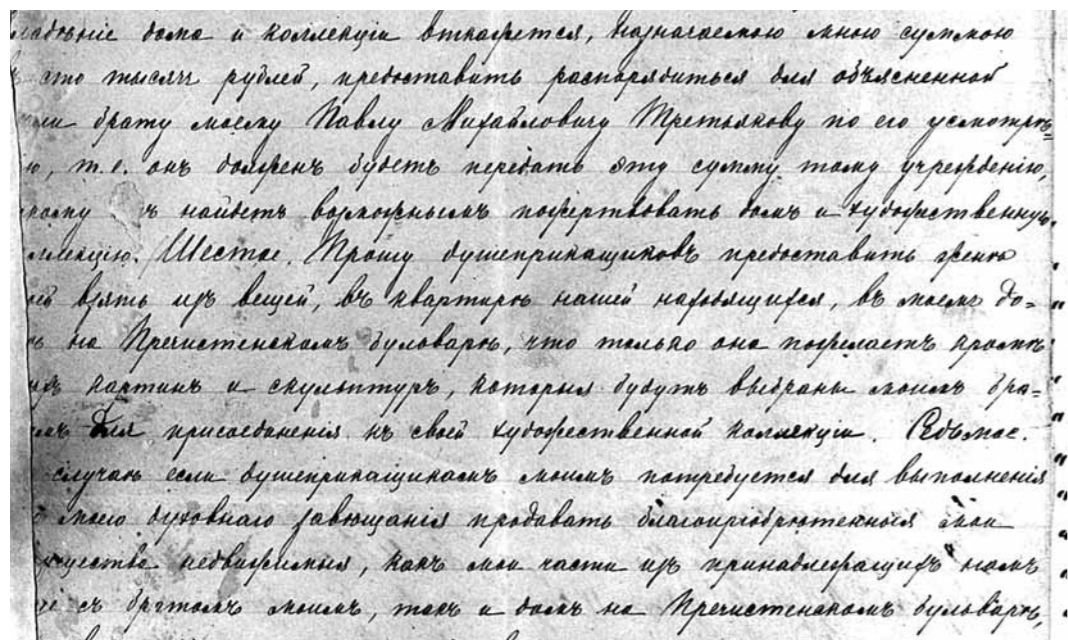 дома и коллекціи откажется, назначаемою мною суммою
сто тысячъ рублей, предоставить распорядиться для объясненной
брату моему Павлу Михайловичу Третьякову по его усмотрѣ=
т. е. онъ долженъ будетъ передать эту сумму тому учрежденію,
найдетъ возможнымъ пожертвовать домъ и художественную
Шестое. Прошу душеприкащиковъ предоставить женѣ
взять изъ вещей, въ квартирѣ нашей находящихся, въ моемъ до=
на Пречистенскомъ бульварѣ, что только она пожелаетъ кромѣ
картинъ и скульптуръ, которыя будутъ выбраны моимъ бра=
для присоединенія къ своей художественной коллекціи. Седьмое.
случаѣ если душеприкащикамъ моимъ потребуется для выполненія
моего духовнаго завѣщанія продавать благопріобрѣтенныя мои
недвижимыя, какъ мои части изъ принадлежащихъ намъ
съ братомъ моимъ, такъ и домъ на Пречистенскомъ бульварѣ,